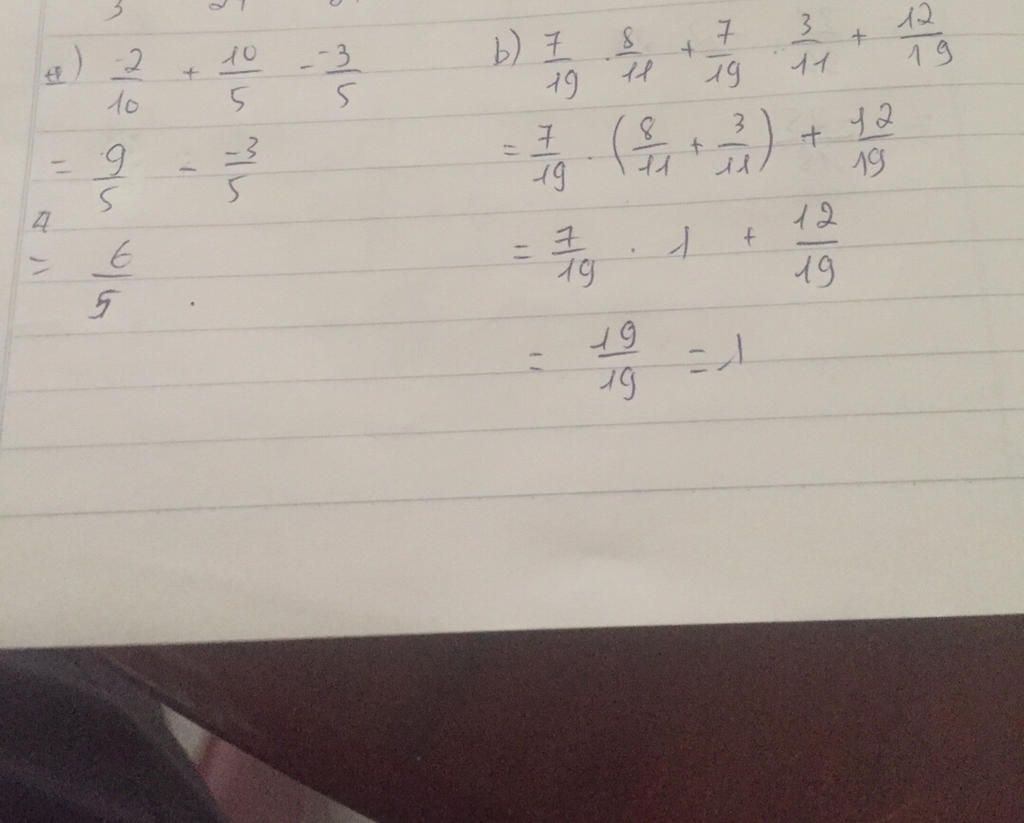 a) -2/10 + 10/5 - -3/5
= 9/5 - -3/5
= 6/5 .
b) 7/19 . 8/11 + 7/19 . 3/11 + 12/19
= 7/19 . (8/11 + 3/11) + 12/19
= 7/19 . 1 + 12/19
= 19/19 = 1